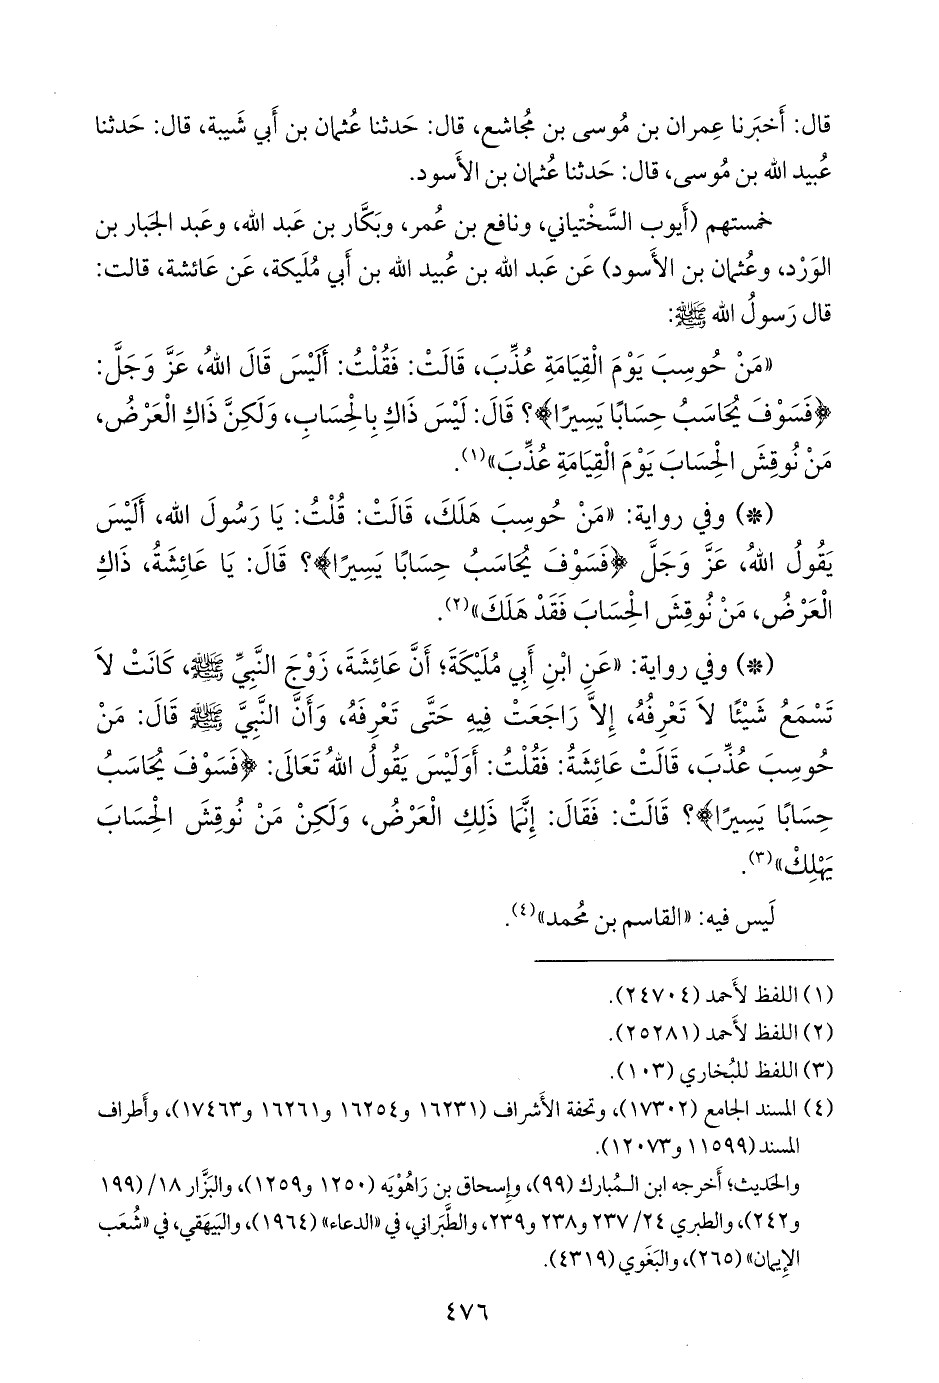 قال: أَخبَرنا عِمران بن مُوسى بن مُجاشع، قال: حَدثنا عُثمان بن أَبي شَيبة، قال: حَدثنا
عُبيد الله بن مُوسى، قال: حَدثنا عُثمان بن الأَسود.
خمستهم (أَيوب السَّخْتياني، ونافع بن عُمر، وبَكَّار بن عَبد الله، وعَبد الجَبار بن
الوَرْد، وعُثمان بن الأَسود) عَن عَبد الله بن عُبيد الله بن أَبي مُلَيكة، عَن عَائشة، قالت:
قال رَسولُ الله ﷺ:
«مَنْ حُوسِبَ يَوْمَ الْقِيَامَةِ عُذِّبَ، قَالَتْ: فَقُلْتُ: أَلَيْسَ قَالَ اللهُ، عَزَّ وَجَلَّ:
﴿فَسَوْفَ يُحَاسَبُ حِسَابًا يَسِيرًا﴾؟ قَالَ: لَيْسَ ذَاكِ بِالْحِسَابِ، وَلَكِنَّ ذَاكِ الْعَرْضُ،
مَنْ نُوقِشَ الْحِسَابَ يَوْمَ الْقِيَامَةِ عُذِّبَ»(١).
(*) وفي رواية: «مَنْ حُوسِبَ هَلَكَ، قَالَتْ: قُلْتُ: يَا رَسُولَ الله، أَلَيْسَ
يَقُولُ اللهُ، عَزَّ وَجَلَّ ﴿فَسَوْفَ يُحَاسَبُ حِسَابًا يَسِيرًا﴾؟ قَالَ: يَا عَائِشَةُ، ذَاكِ
الْعَرْضُ، مَنْ نُوقِشَ الْحِسَابَ فَقَدْ هَلَكَ»(٢).
(*) وفي رواية: «عَنِ ابْنِ أَبِي مُلَيْكَةَ؛ أَنَّ عَائِشَةَ، زَوْجَ النَّبِيِّ ﷺ، كَانَتْ لاَ
تَسْمَعُ شَيْئًا لاَ تَعْرِفُهُ، إِلاَّ رَاجَعَتْ فِيهِ حَتَّى تَعْرِفَهُ، وَأَنَّ النَّبِيَّ ﷺ قَالَ: مَنْ
حُوسِبَ عُذِّبَ، قَالَتْ عَائِشَةُ: فَقُلْتُ: أَوَلَيْسَ يَقُولُ اللهُ تَعَالَى: ﴿فَسَوْفَ يُحَاسَبُ
حِسَابًا يَسِيرًا﴾؟ قَالَتْ: فَقَالَ: إِنَّمَا ذَلِكِ الْعَرْضُ، وَلَكِنْ مَنْ نُوقِشَ الْحِسَابَ
يَهْلِكْ»(٣).
لَيس فيه: «القاسم بن مُحمد»(٤).
(١) اللفظ لأَحمد (٢٤٧٠٤).
(٢) اللفظ لأَحمد (٢٥٢٨١).
(٣) اللفظ للبُخاري (١٠٣).
(٤) المسند الجامع (١٧٣٠٢)، وتحفة الأَشراف (١٦٢٣١ و١٦٢٥٤ و١٦٢٦١ و١٧٤٦٣)، وأَطراف
المسند (١١٥٩٩ و١٢٠٧٣).
والحَديث؛ أَخرجه ابن الـمُبارك (٩٩)، وإِسحاق بن رَاهُوْيَه (١٢٥٠ و١٢٥٩)، والبَزَّار ١٨/(١٩٩
و٢٤٢)، والطبري ٢٤/ ٢٣٧ و٢٣٨ و٢٣٩، والطَّبَراني، في «الدعاء» (١٩٦٤)، والبَيهَقي، في «شُعَب
الإِيمان» (٢٦٥)، والبَغَوي (٤٣١٩).
٤٧٦